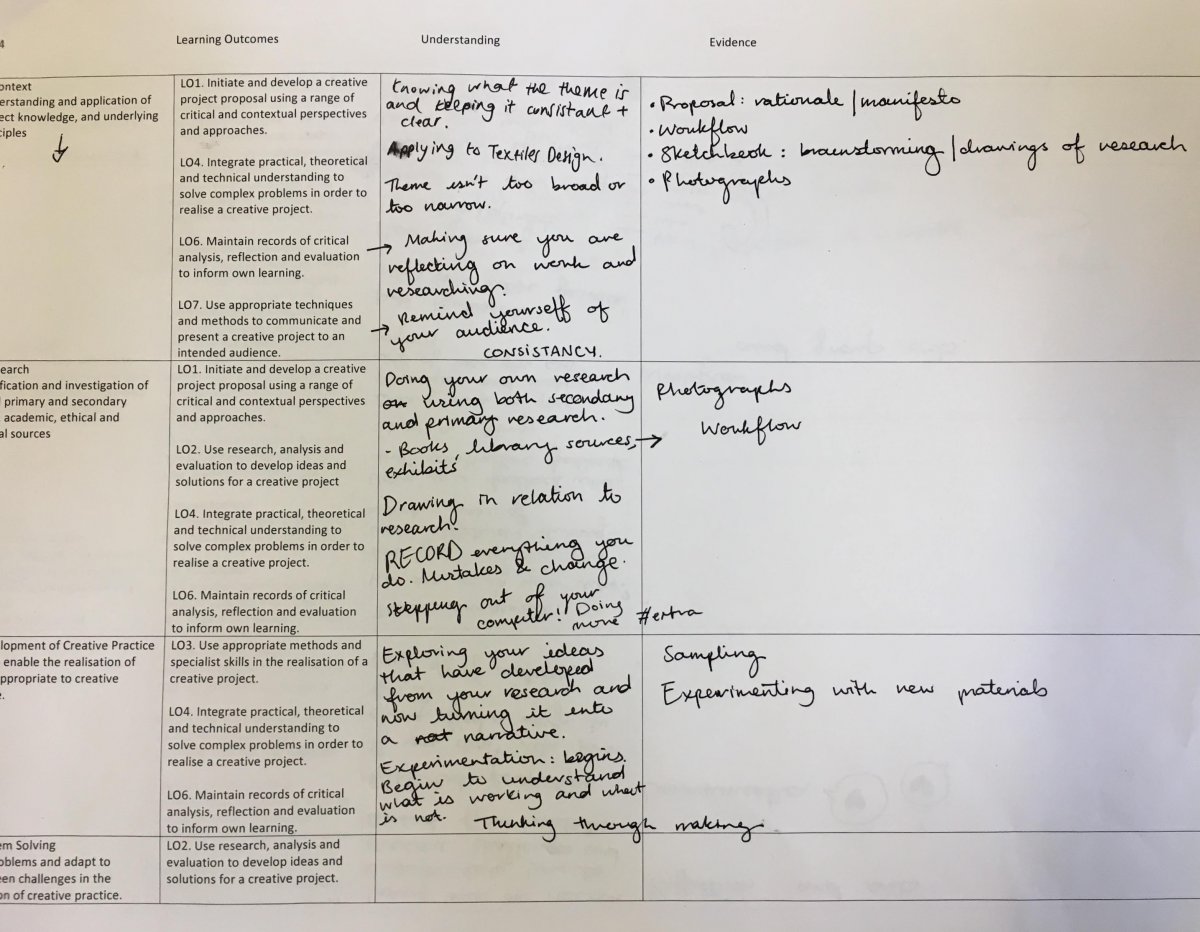 4
Learning Outcomes
Understanding
Evidence
ontext
erstanding and application of
ect knowledge, and underlying
ciples
LO1. Initiate and develop a creative
project proposal using a range of
critical and contextual perspectives
and approaches.
LO4. Integrate practical, theoretical
and technical understanding to
solve complex problems in order to
realise a creative project.
LO6. Maintain records of critical
analysis, reflection and evaluation
to inform own learning.
LO7. Use appropriate techniques
and methods to communicate and
present a creative project to an
intended audience.
Knowing what the theme is
and keeping it consistant +
clear.
Applying to Textiles Design.
Theme isn't too broad or
too narrow.
→ Making sure you are
reflecting on work and
researching.
→ Remind yourself of
your audience.
CONSISTANCY.
• Proposal: rationale / manifesto
• Workflow
• Sketchbook: brainstorming / drawings of research
• Photographs
earch
fication and investigation of
primary and secondary
academic, ethical and
al sources
LO1. Initiate and develop a creative
project proposal using a range of
critical and contextual perspectives
and approaches.
LO2. Use research, analysis and
evaluation to develop ideas and
solutions for a creative project
LO4. Integrate practical, theoretical
and technical understanding to
solve complex problems in order to
realise a creative project.
LO6. Maintain records of critical
analysis, reflection and evaluation
to inform own learning.
Doing your own research
on using both secondary
and primary research.
- Books, library sources, →
exhibits
Drawing in relation to
research.
RECORD everything you
do. Mistakes & change.
stepping out of your
computer! Doing
more #extra
Photographs
Workflow
lopment of Creative Practice
enable the realisation of
ppropriate to creative
e.
LO3. Use appropriate methods and
specialist skills in the realisation of a
creative project.
LO4. Integrate practical, theoretical
and technical understanding to
solve complex problems in order to
realise a creative project.
LO6. Maintain records of critical
analysis, reflection and evaluation
to inform own learning.
Exploring your ideas
that have developed
from your research and
now turning it into
a nat narrative.
Experimentation: begins.
Begin to understand
what is working and what
is not. Thinking through making.
Sampling
Experimenting with new materials
em Solving
oblems and adapt to
een challenges in the
on of creative practice.
LO2. Use research, analysis and
evaluation to develop ideas and
solutions for a creative project.